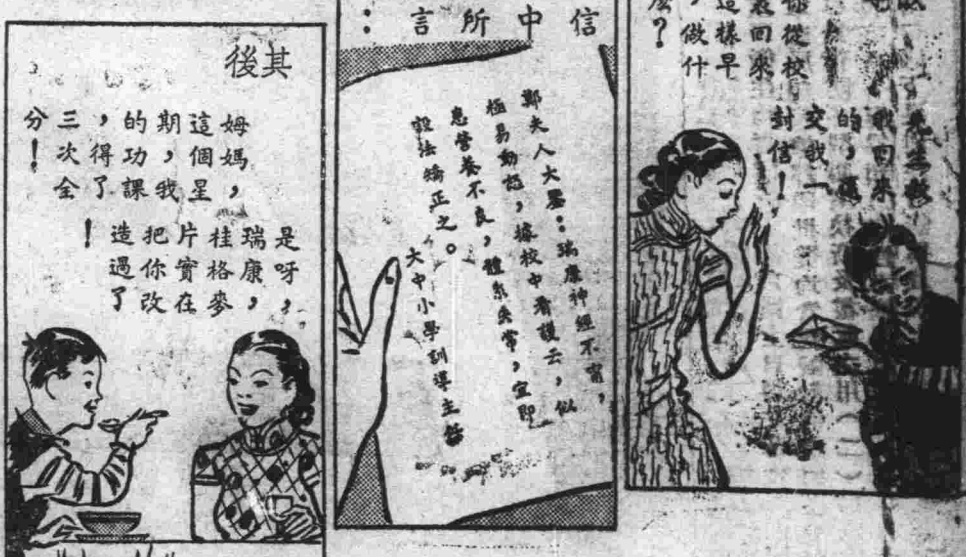 你從校
裏回來
這樣早
，做什
麼？
先生教
我回來
的，還
交我一
封信！
信中所言：
鄭夫人大鑒：瑞康神經不甯，
極易動怒，據校中看護云，似
患營養不良，體系失常，宜即
設法矯正之。
大中小學訓導主
其後
姆媽，
這個星
期，我
的功課
，得了
三次全
分！
是呀，
瑞康，
桂格麥
片實在
把你改
造過了
！